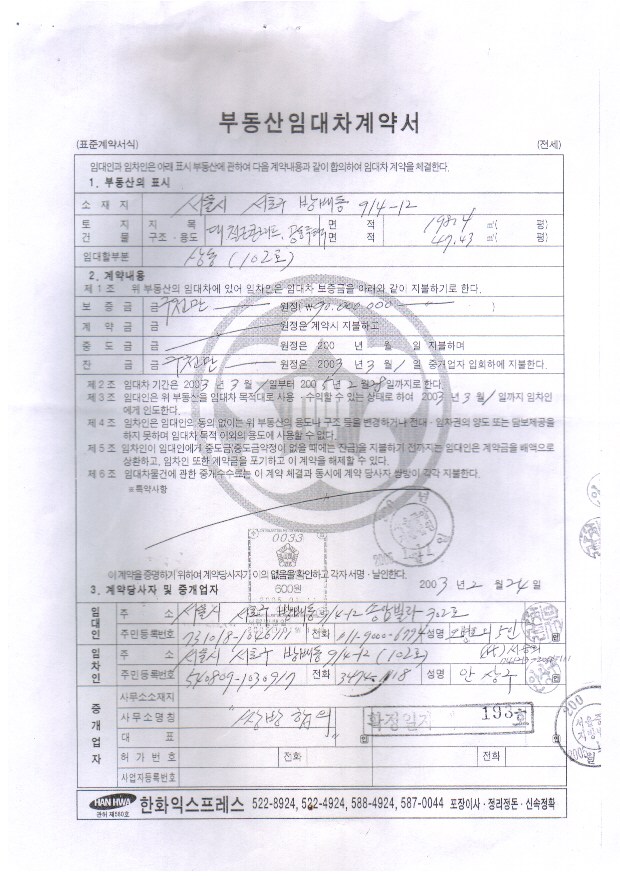 부동산임대차계약서
(표준계약서식) (전세)
임대인과 임차인은 아래 표시 부동산에 관하여 다음 계약내용과 같이 합의하여 임대차 계약을 체결한다.
1. 부동산의 표시
소 재 지 서울시 서초구 방배동 914-12
토 지 지 목 면 적 ㎡( 평)
건 물 구조·용도 면 적 47.43 ㎡( 평)
임대할부분 (102호)
2. 계약내용
제1조 위 부동산의 임대차에 있어 임차인은 임대차 보증금을 아래와 같이 지불하기로 한다.
보 증 금 금 구천만 원정(₩90.000.000 )
계 약 금 금 원정은 계약시 지불하고
중 도 금 금 원정은 200 년 월 일 지불하며
잔 금 금 구천만 원정은 2003년 3월 1일 중개업자 입회하에 지불한다.
제2조 임대차 기간은 2003년 3월 1일부터 2005년 2월 28일까지로 한다.
제3조 임대인은 위 부동산을 임대차 목적대로 사용·수익할 수 있는 상태로 하여 2003년 3월 1일까지 임차인
에게 인도한다.
제4조 임차인은 임대인의 동의 없이는 위 부동산의 용도나 구조 등을 변경하거나 전대·임차권의 양도 또는 담보제공을
하지 못하며 임대차 목적 이외의 용도에 사용할 수 없다.
제5조 임차인이 임대인에게 중도금(중도금약정이 없을 때에는 잔금)을 지불하기 전까지는 임대인은 계약금을 배액으로
상환하고, 임차인 또한 계약금을 포기하고 이 계약을 해제할 수 있다.
제6조 임대차물건에 관한 중개수수료는 이 계약 체결과 동시에 계약 당사자 쌍방이 각각 지불한다.
※특약사항
0033
600원
이 계약을 증명하기 위하여 계약당사자가 이의 없음을 확인하고 각자 서명·날인한다.
2003년 2월 24일
3. 계약당사자 및 중개업자
임대인 주 소 서울시 서초구 방배동 914-12 302호
주민등록번호 전화 성명
임차인 주 소 서울시 서초구 방배동 914-12 (102호)
주민등록번호 540809-1030917 전화 성명 안상
중개업자 사무소소재지
사무소명칭 쌍방합의
확정일자 193호
대 표 ㊞
허가번호 전화 전화
사업자등록번호
HAN HWA 한화익스프레스 522-8924, 522-4924, 588-4924, 587-0044 포장이사·정리정돈·신속정확
관허 제560호